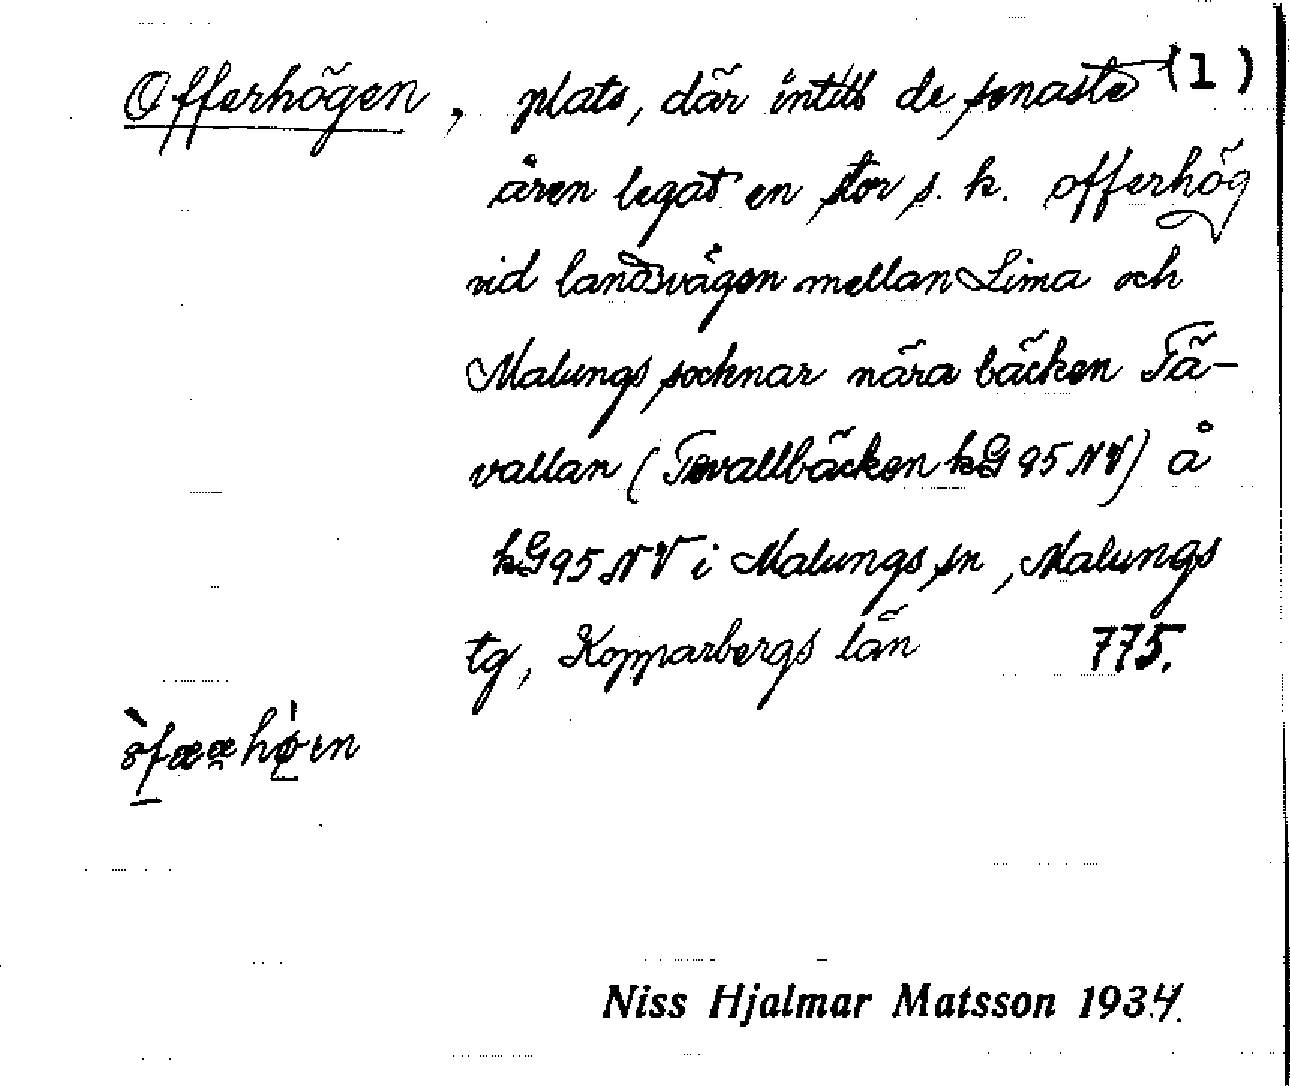 Offerhögen, plats, där intill de senaste (1)
åren legat en stor s. k. offerhög
vid landsvägen mellan Lima och
Malungs socknar nära bäcken Tä-
vallan (Tevallbäcken kG 95 NV) å
kG 95 NV i Malungs sn, Malungs
tg, Kopparbergs län 775.
Niss Hjalmar Matsson 1934.